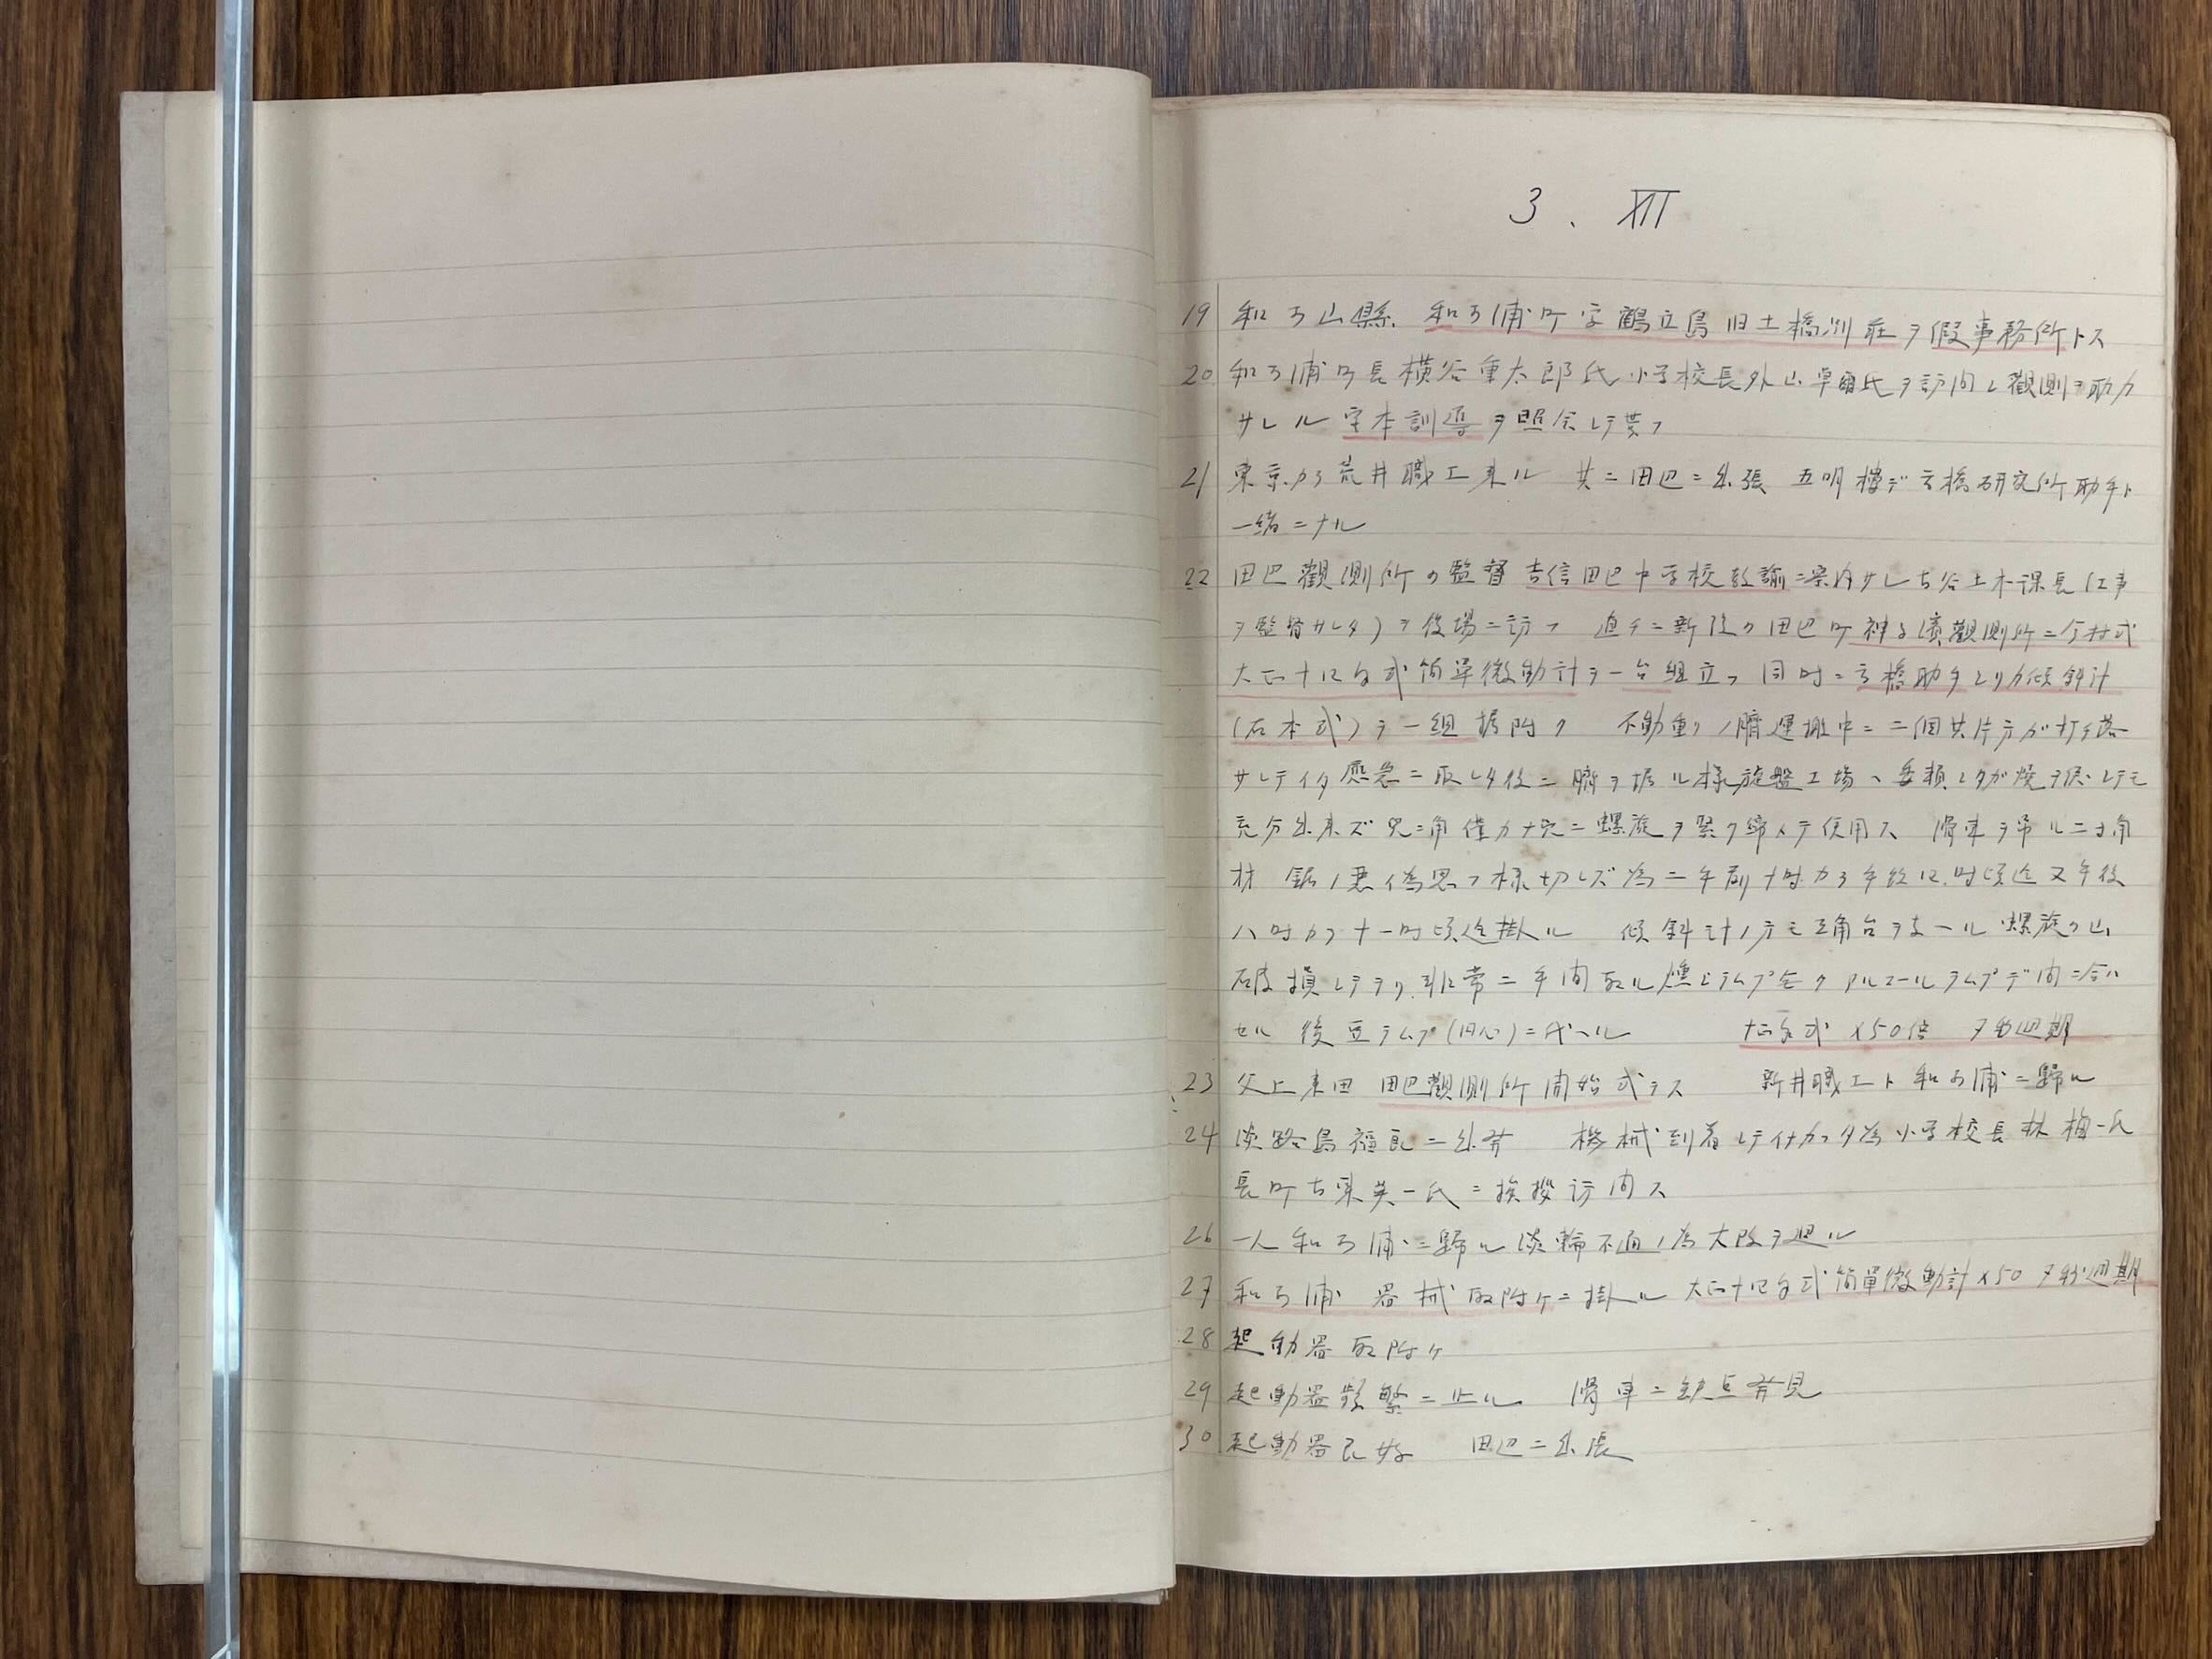 3. XII
19 和ヲ山縣 和ヲ浦町字鶴立島旧土橋別荘ヲ假事務所トス
20 和ヲ浦町長横谷重太郎氏小学校長外山卓爾氏ヲ訪問シ觀測ヲ助力
サレル 訓導ヲ照会シテ貰フ
21 東京カラ荒井職工来ル 共ニ田辺ニ出張 五明樓デ高橋研究所助手ト
一緒ニナル
22 田辺觀測所ノ監督吉信田辺中学校教諭ニ案内サレ古谷土木課長(工事
ヲ監督サレタ)ヲ役場ニ訪フ 直チニ新設ノ田辺町神子濱觀測所ニ今村式
大正十四年式簡單微動計ヲ一台組立ツ 同時ニ高橋助手ヨリカ傾斜計
(石本式)ヲ一組据附ク 不動重リノ臍運搬中ニ二個共片方ガ打チ落
サレテイタ應急ニ取レタ後ニ臍ヲ据ル様旋盤工場ヘ委頼シタガ焼ヲ シテモ
充分出来ズ 角 穴ニ螺旋ヲ緊ク締メテ使用ス 滑車ヲ吊ル二寸角
材 鋸ノ悪イ為思フ様切レズ為ニ午前十時カラ午後四時頃迄又午後
八時カラ十一時頃迄掛ル 傾斜計ノ方モ三角台ヲ支ヘル螺旋ノ山
破損シテヲリ非常ニ手間取ル燻シランプ モ アルコールランプデ間ニ合ハ
セル 後豆ランプ( )ニ代ヘル 大正十四年式×50倍 ヲ秒週期
23 父上来田 田辺觀測所開始式ヲス 新井職工ト和ヲ浦ニ歸ル
24 淡路島福良ニ出発 機械到着シテイナカッタ為小学校長林楠一氏
長町古東英一氏ニ挨拶訪問ス
26 一人和ヲ浦ニ歸ル淡輪不通ノ為大阪ヲ廻ル
27 和ヲ浦 器械取附ケニ掛ル 大正十四年式簡單微動計×50 ヲ秒週期
28 起動器取附ケ
29 起動器頻繁ニ止ル 滑車ニ缺点発見
30 起動器良好 田辺ニ出張